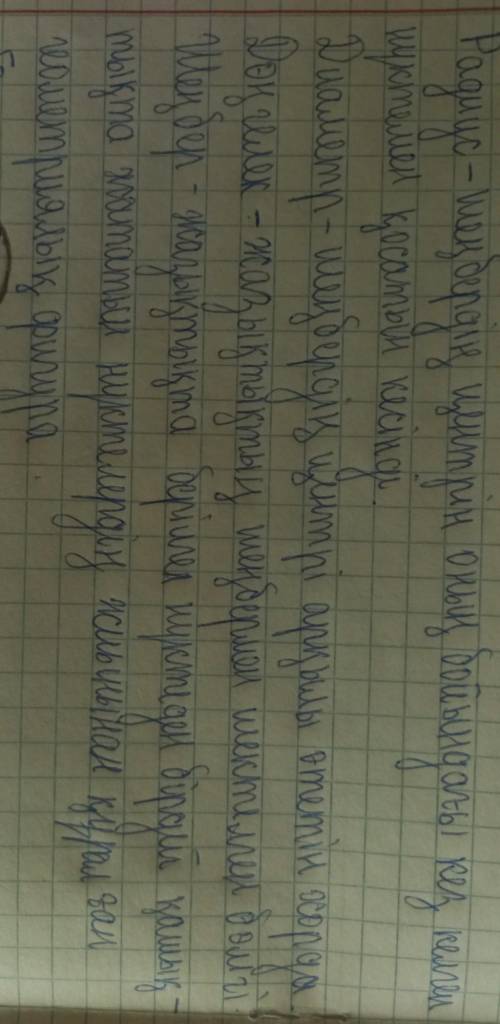 Радиус - шеңбердің центрін оның бойындағы кез келген
нүктемен қосатын кесінді.
Диаметр - шеңбердің центрі арқылы өтетін хорда.
Дөңгелек - жазықтықтың шеңбермен шектелген бөлігі.
Шеңбер - жазықтықта берілген нүктеден бірдей қашық-
тықта жататын нүктелердің жиынынан құралған
геометриялық фигура